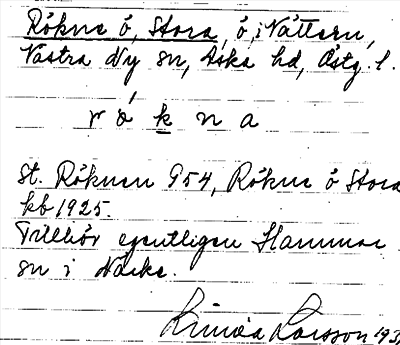 Rökne ö, Stora, ö i Vättern,
Västra Ny sn, Aska hd, Östg. l.
r ó k n a
St. Röknen G54, Rökne ö Stora
kb 1925.
Tillhör egentligen Hammar
sn i Närke.
Linnéa Larsson 193